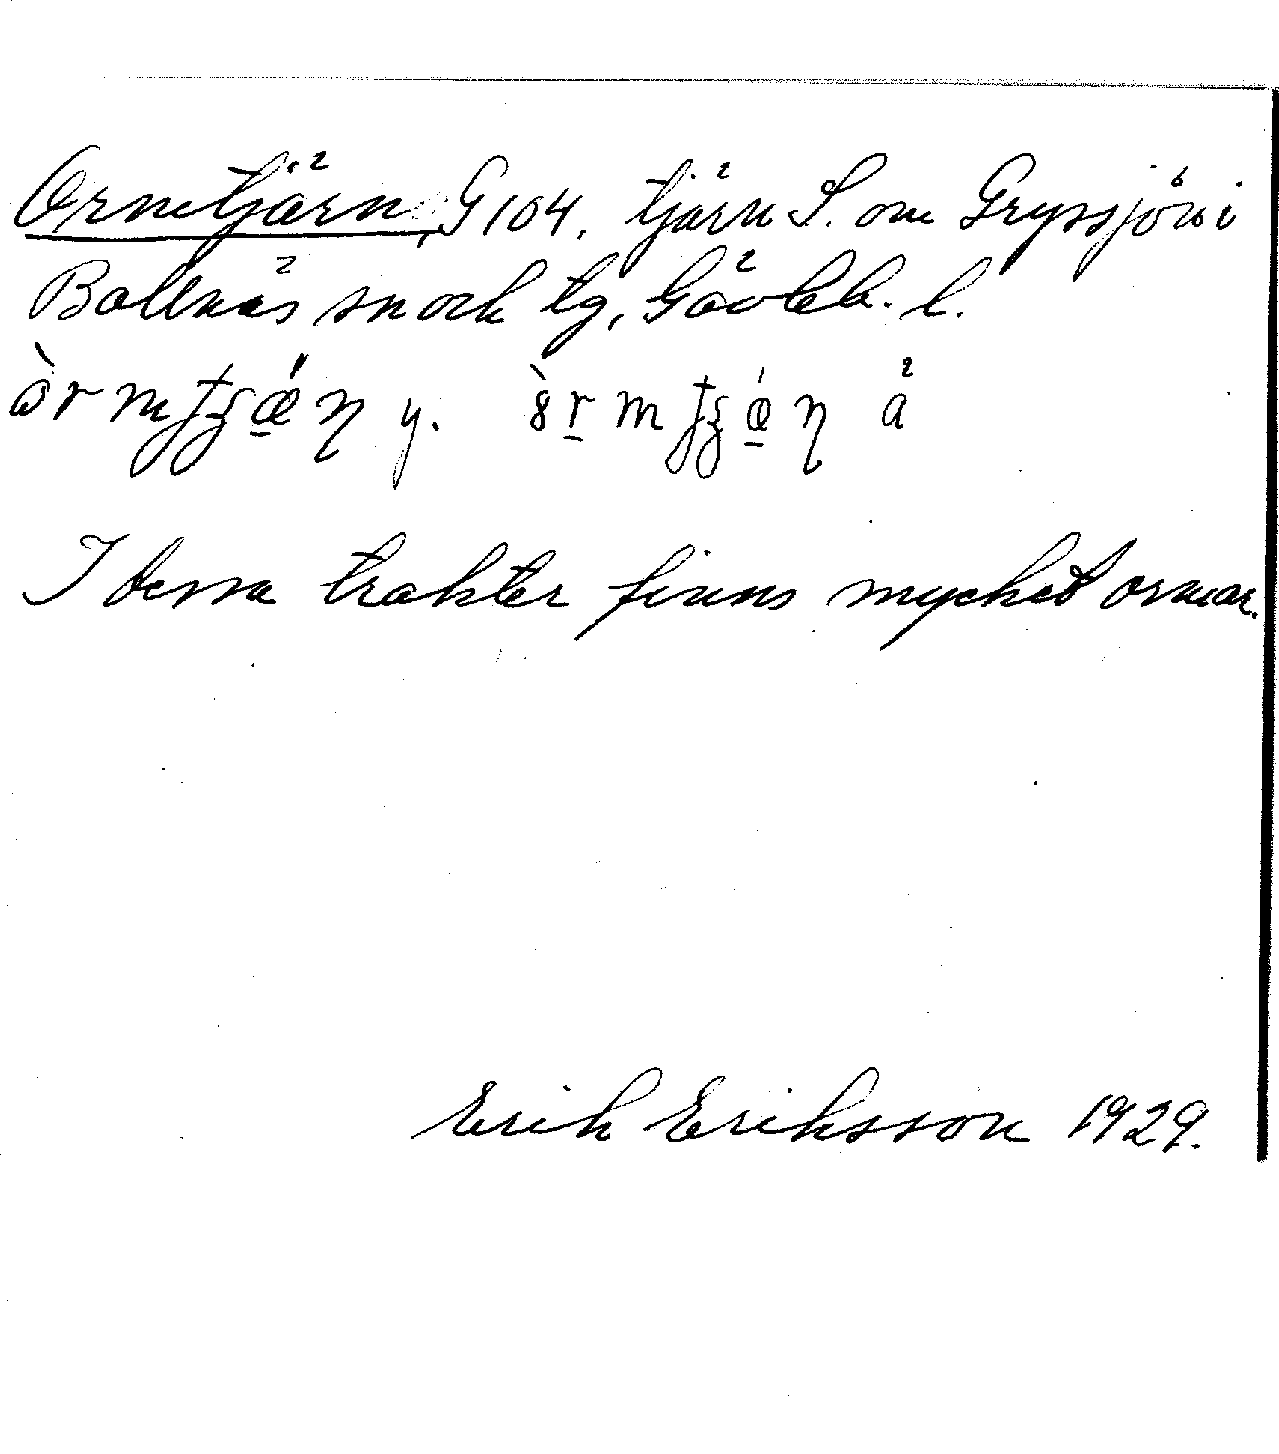 Ormtjärn, G 104. tjärn S. om Gryssjön i
Bollnäs sn och tg, Gävleb. l.
y. å
I dessa trakter finns mycket ormar.
Erik Eriksson 1929.